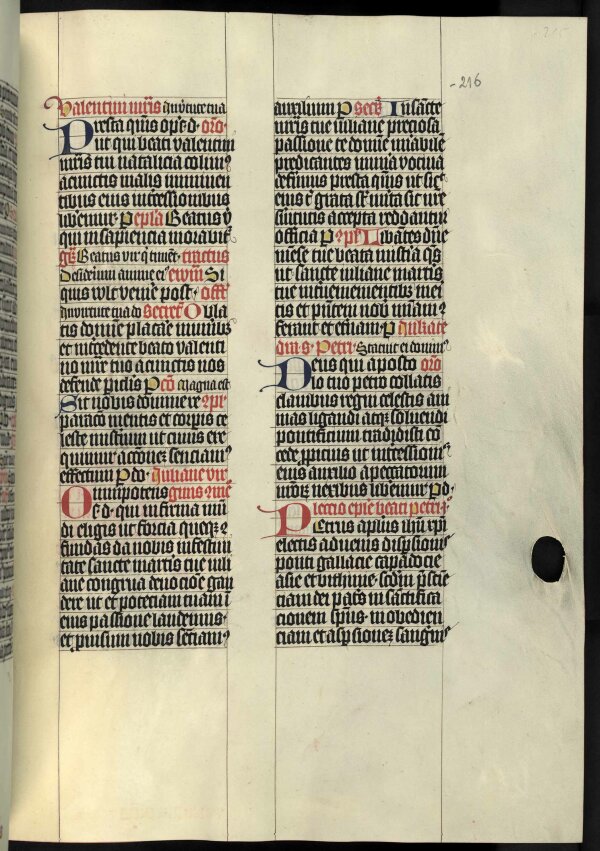 216
Valentini mr̄is In v̄tute tua
Presta qm̄s op̄s d. oro.
ut qui beati valentini
mr̄is tui natalicia colim9
a cunctis malis imminen
tibus eius int̄cessionibus
liberemur. P ep̄la Beatus v̄
qui in sapiencia morabit̄
ḡ Beatus vir q̄ timet. tractus
Desiderium anime ei9 ewm̄ Si
quis vult venire post. off̄
In virtute tua do secret̄ Obla
tis domine placare munib9
et int̄cedente beato valenti
no mr̄e tuo a cunctis nos
defende piculis P cō Magna est
Sit nobis domine re xp̄i
paracō mentis et corporis ce
leste misterium ut cuius exe
quimur accōnez senciam9
effectum P do. Juliane vir
Omnipotens ginis 7 mr̄
se d. qui infirma mū
di eligis ut forcia queq3 9
fundas da nobis in festiui
tate sancte martir̄ tue iuli
ane congrua deuocōe gau
dere ut et potenciam tuam ī
eius passione laudemus.
et prouisum nobis senciam9
auxilium P secr̄ In sancte
mr̄is tue iuliane preciosa
passione te domine mirabile
predicantes munera votiua
deferimus presta qm̄s ut sic
eius t̄ grata s̄t merita sic nr̄e
seruitutis accepta reddantur
officia P 9pl̄ Libantes dn̄e
mense tue beata misteria qs
ut sancte iuliane martir̄is
tue interuenientibus meri
tis et presentem nob misericordiam 9
ferant et eternam. P In kathe
dra s. Petri. Statuit ei domin9
Deus qui aposto oro
lo tuo petro collatis
clauibus regni celestis ani
mas ligandi atq3 soluendi
pontificium tradidisti cō
cede propicius ut intercessionis
eius auxilio a peccatorum
nr̄orum nexibus liberemur P d.
Lectio epl̄e beati petri.
Petrus apl̄us ihu xpi
electis aduenis dispersionis
ponti gallacie capadocie
asie et bithinie. Scdm presci
enciam dei patris in sanctifica
cionem spūs. in obedien
ciam et aspersionez sanguinis